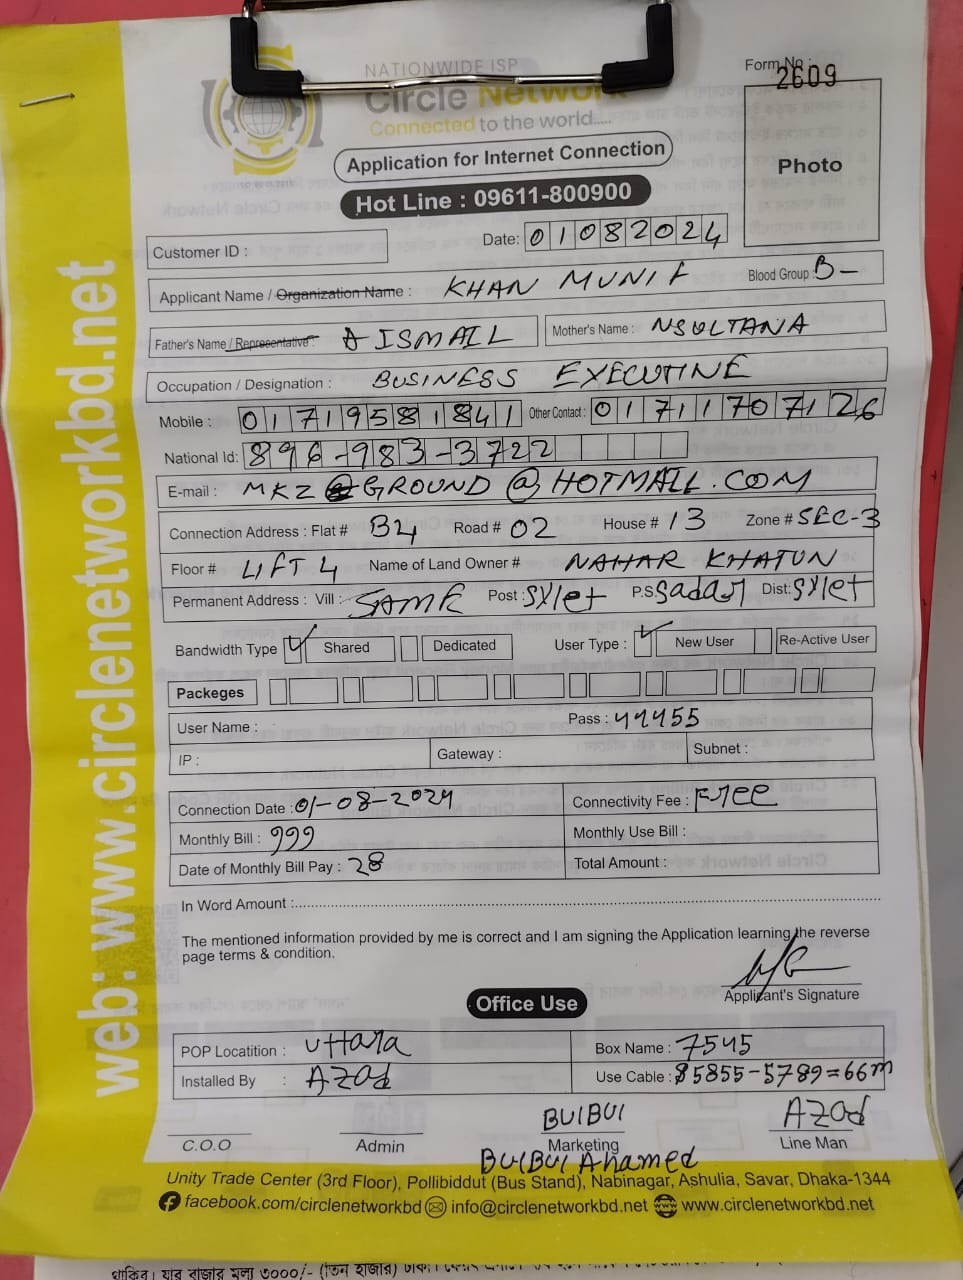 NATIONWIDE ISP
Circle Network
Connected to the world.....
Form No :
2609
Photo
Application for Internet Connection
Hot Line : 09611-800900
Customer ID :
Date: 01082024
Applicant Name / Organization Name : KHAN MUNIF
Blood Group : B-
Father's Name / Representative : A ISMAIL
Mother's Name : NSULTANA
Occupation / Designation : BUSINESS EXECUTINE
Mobile : 01719581841 Other Contact : 01711707126
National Id: 896-983-3722
E-mail : MKZ GROUND@HOTMALL.COM
Connection Address : Flat # B4 Road # 02 House # 13 Zone # SEC-3
Floor # LIFT 4 Name of Land Owner # NAHAR KHATUN
Permanent Address : Vill : SAME Post : SYlet P.S Sadar Dist: SYlet
Bandwidth Type Shared Dedicated User Type : New User Re-Active User
Packeges
User Name : Pass : 44455
IP : Gateway : Subnet :
Connection Date : 01-08-2024 Connectivity Fee : Free
Monthly Bill : 999 Monthly Use Bill :
Date of Monthly Bill Pay : 28 Total Amount :
In Word Amount :
The mentioned information provided by me is correct and I am signing the Application learning the reverse
page terms & condition.
Applicant's Signature
Office Use
POP Locatition : Uttara Box Name : 7545
Installed By : AZad Use Cable : 85855-5789=66m
BUlBUl AZad
C.O.O Admin Marketing Line Man
BUlBUl Ahamed
Unity Trade Center (3rd Floor), Pollibiddut (Bus Stand), Nabinagar, Ashulia, Savar, Dhaka-1344
facebook.com/circlenetworkbd info@circlenetworkbd.net www.circlenetworkbd.net
web: www.circlenetworkbd.net